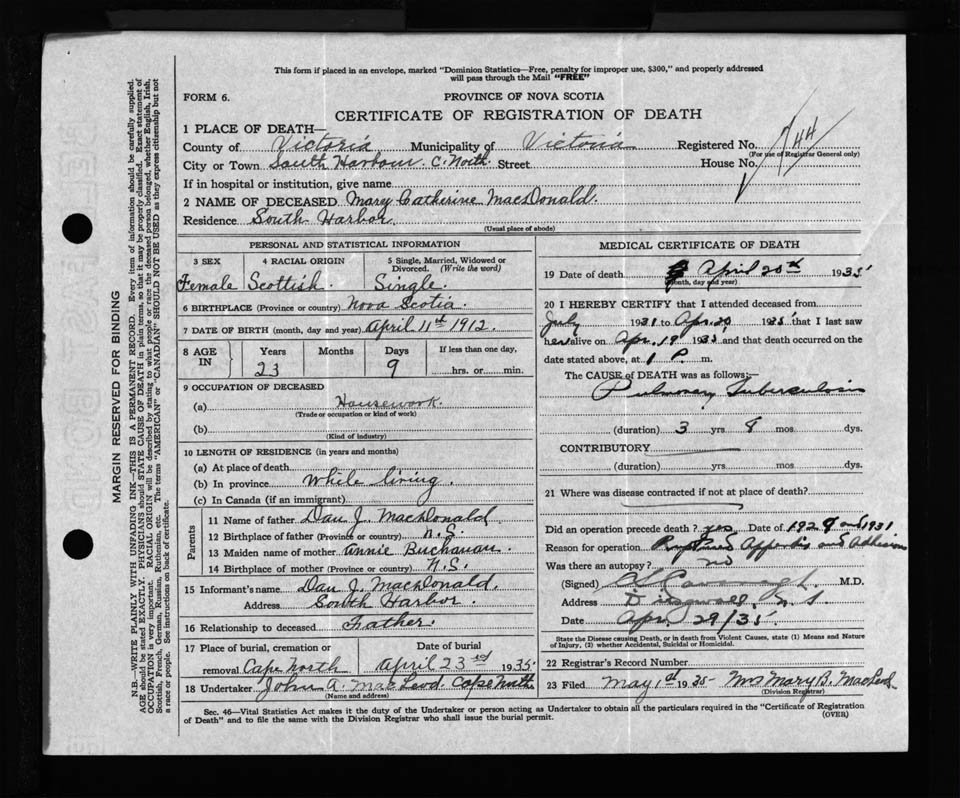 This form if placed in an envelope, marked "Dominion Statistics—Free, penalty for improper use, $300," and properly addressed
will pass through the Mail "FREE"
FORM 6.
PROVINCE OF NOVA SCOTIA
CERTIFICATE OF REGISTRATION OF DEATH
1 PLACE OF DEATH—
County of Victoria Municipality of Victoria Registered No. 744
(For use of Registrar General only)
City or Town South Harbour. C. North Street House No.
If in hospital or institution, give name
2 NAME OF DECEASED Mary Catherine MacDonald.
Residence South Harbor.
(Usual place of abode)
PERSONAL AND STATISTICAL INFORMATION
3 SEX 4 RACIAL ORIGIN 5 Single, Married, Widowed or Divorced. (Write the word)
Female Scottish. Single.
6 BIRTHPLACE (Province or country) Nova Scotia.
7 DATE OF BIRTH (month, day and year) April 11th 1912.
8 AGE IN Years Months Days If less than one day,
23 9 hrs. or min.
9 OCCUPATION OF DECEASED
(a) Housework.
(Trade or occupation or kind of work)
(b)
(Kind of industry)
10 LENGTH OF RESIDENCE (in years and months)
(a) At place of death
(b) In province While living.
(c) In Canada (if an immigrant)
Parents
11 Name of father Dan J. MacDonald
12 Birthplace of father (Province or country) N.S.
13 Maiden name of mother Annie Buchanan.
14 Birthplace of mother (Province or country) N.S.
15 Informant's name Dan J. MacDonald.
Address South Harbor.
16 Relationship to deceased Father.
17 Place of burial, cremation or removal Cape North Date of burial April 23rd 1935
18 Undertaker John A. MacLeod Cape North
(Name and address)
MEDICAL CERTIFICATE OF DEATH
19 Date of death April 20th 1935
(Month, day and year)
20 I HEREBY CERTIFY that I attended deceased from
July 1931 to Apr. 20 1935 that I last saw
her alive on Apr. 19 1935, and that death occurred on the
date stated above, at 1 P. m.
The CAUSE of DEATH was as follows:—
Pulmonary Tuberculosis
(duration) 3 yrs. 8 mos. dys.
CONTRIBUTORY
(duration) yrs. mos. dys.
21 Where was disease contracted if not at place of death?
Did an operation precede death? yes Date of 1929 and 1931
Reason for operation Ruptured and Adhesions
Was there an autopsy? no
(Signed) M.D.
Address Dingwall, N.S.
Date Apr. 29/35
State the Disease causing Death, or in death from Violent Causes, state (1) Means and Nature
of Injury, (2) whether Accidental, Suicidal or Homicidal.
22 Registrar's Record Number
23 Filed May 1st 1935 Mrs Mary B. MacLeod
(Division Registrar)
Sec. 46—Vital Statistics Act makes it the duty of the Undertaker or person acting as Undertaker to obtain all the particulars required in the "Certificate of Registration
of Death" and to file the same with the Division Registrar who shall issue the burial permit.
(OVER)
MARGIN RESERVED FOR BINDING
N.B.—WRITE PLAINLY WITH UNFADING INK—THIS IS A PERMANENT RECORD. Every item of information should be carefully supplied.
AGE should be stated EXACTLY. PHYSICIANS should STATE CAUSE OF DEATH in plain terms, so that it may be properly classified. Exact statement of
OCCUPATION is very important. RACIAL ORIGIN will be described by stating to what people or race the deceased person belonged, whether English, Irish,
Scottish, French, German, Russian, Ruthenian, etc. The terms "AMERICAN" or "CANADIAN" SHOULD NOT BE USED as they express citizenship but not
a race or people. See instructions on back of certificate.